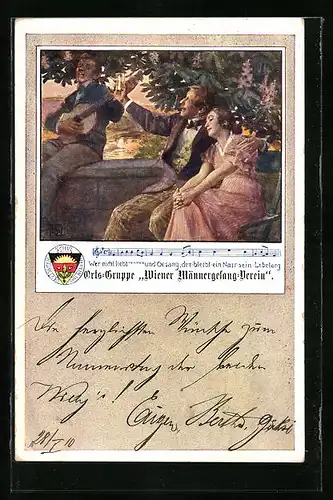 Wer nicht liebt und Gesang, der bleibt ein Narr sein Lebelang
Orts-Gruppe „Wiener Männergesang-Verein“.
Die herzlichsten Wünsche zum
Namenstag der beiden
Eugen, Berth.
28/I 10